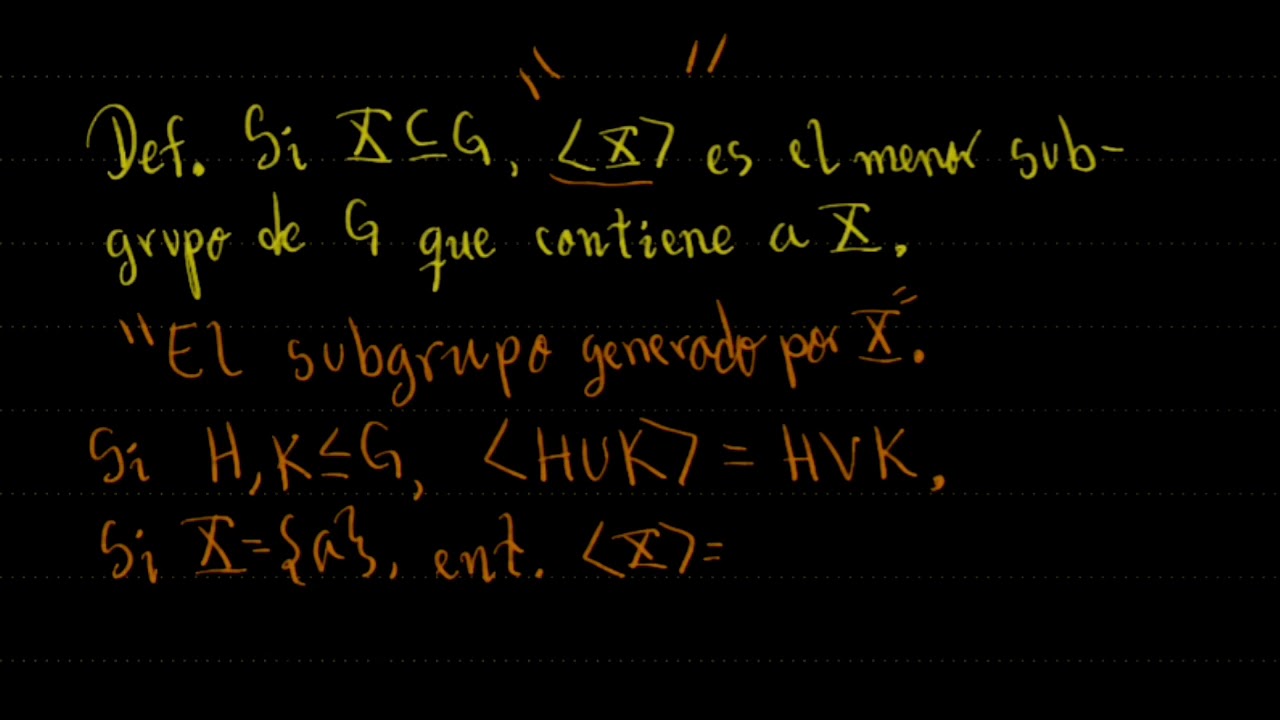 " "
Def. Si X ⊆ G, ⟨X⟩ es el menor sub-
grupo de G que contiene a X.
"El subgrupo generado por X".
Si H, K ≤ G, ⟨H∪K⟩ = H∨K,
Si X = {a}, ent. ⟨X⟩ =